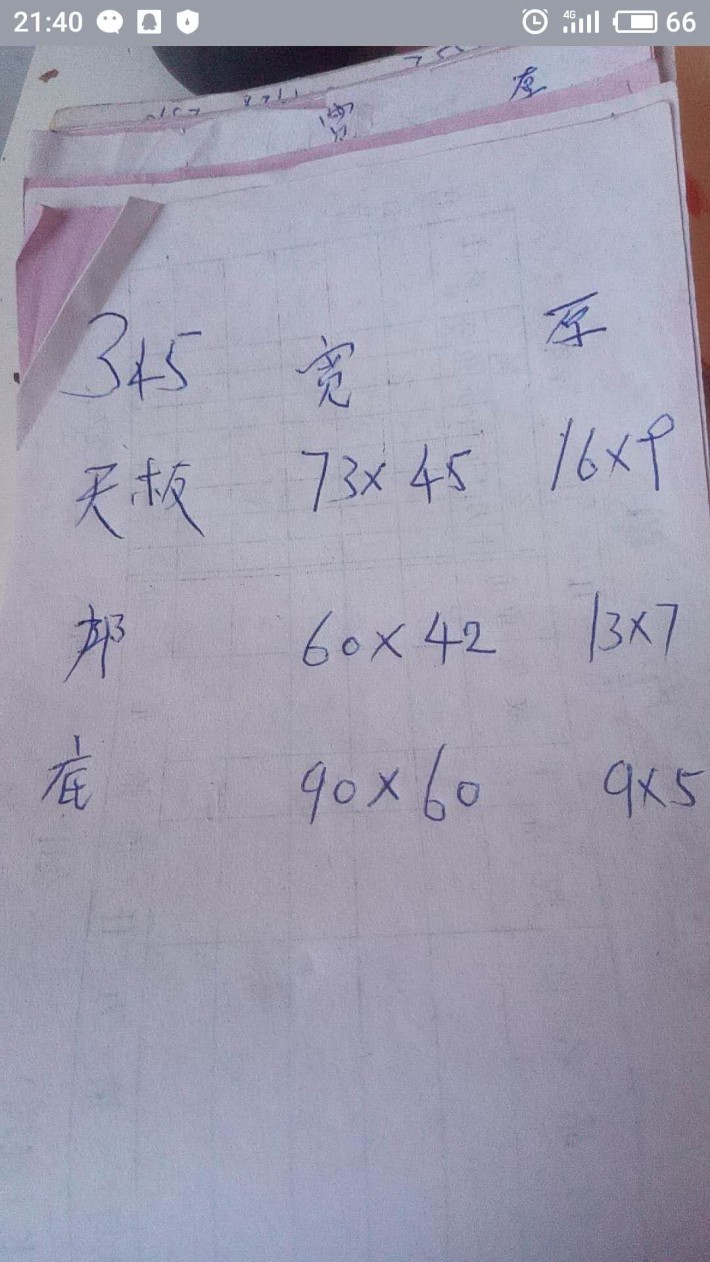 21:40 4G 66
宽
345 宽 厚
天板 73×45 16×9
邦 60×42 13×7
底 90×60 9×5